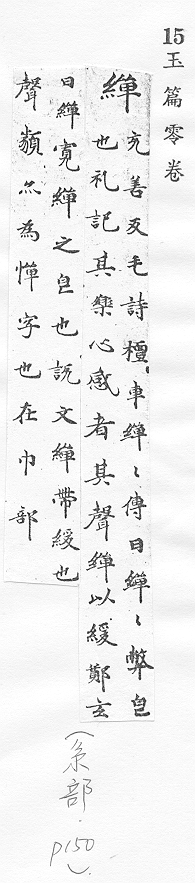 15 玉篇零卷
繟 充善反毛詩檀車繟〻傳曰繟〻弊皃
也礼記其樂心感者其聲繟以緩鄭玄
曰繟寛繟之皃也說文繟帶緩也
聲類亦為幝字也在巾部
(糸部. p150).